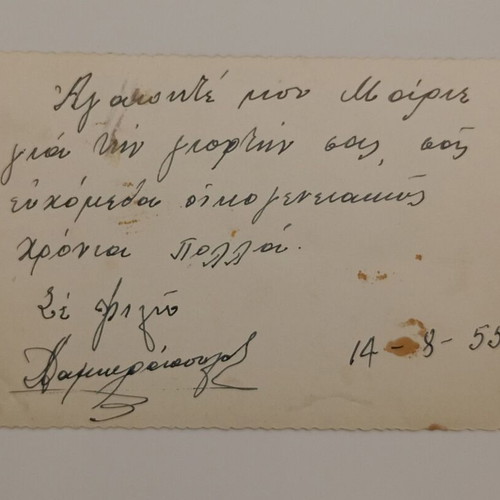 Ἀγαπητέ μου Μάριε
γιά τήν γιορτήν σας, σᾶς
εὐχόμεθα οἰκογενειακῶς
Χρόνια Πολλά.
Σέ φιλῶ
14-8-55